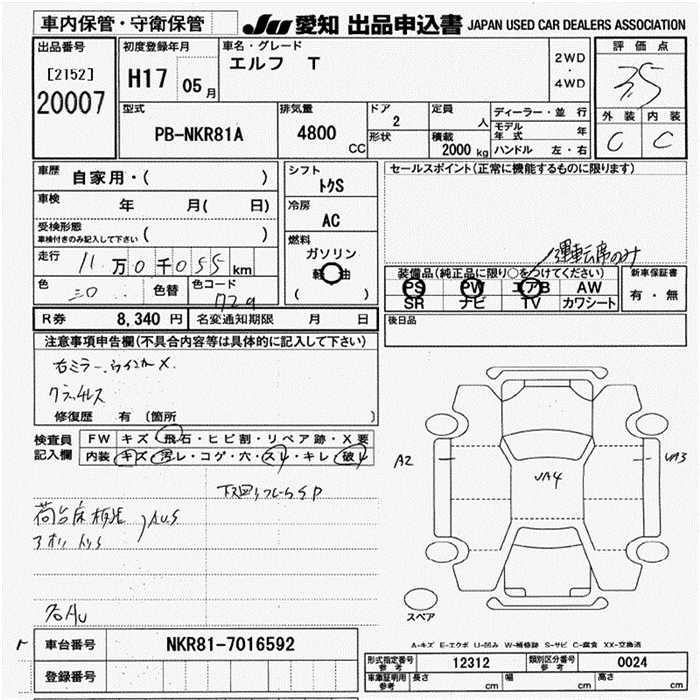 車内保管・守衛保管
JU 愛知 出品申込書 JAPAN USED CAR DEALERS ASSOCIATION
出品番号
[2152]
20007
初度登録年月
H17 05 月
車名・グレード
エルフ T
2WD
・
4WD
評価点
3.5
外装 内装
C C
型式
PB-NKR81A
排気量
4800 CC
ドア
2
形状
定員
人
積載
2000 kg
ディーラー・並行
モデル年式 年
ハンドル 左・右
車歴 自家用・( )
車検 年 月( 日)
受検形態
車検付きのみ記入して下さい ( )
走行 11万0千055 km
色 シロ 色替 色コード 729
シフト
トクS
冷房
AC
燃料
ガソリン
軽油
( )
セールスポイント(正常に機能するものに限ります)
運転席のみ
装備品(純正品に限り○をつけてください)
PS PW エアB AW
SR ナビ TV カワシート
新車保証書
有・無
後日品
R券 8,340 円 名変通知期限 月 日
注意事項申告欄(不具合内容等は具体的に記入して下さい)
右ミラー、ウインカーX
クラッチレス
修復歴 有 〔箇所 〕
検査員記入欄
FW キズ・飛石・ヒビ割・リペア跡・X要
内装 キズ・汚レ・コゲ・穴・スレ・キレ・破レ
荷台床板
A2
UA4
UA3
スペア
A-キズ E-エクボ U-凹み W-補修跡 S-サビ C-腐食 XX-交換済
車台番号 NKR81-7016592
登録番号
形式指定番号 参考 12312 類別区分番号 参考 0024
車庫証明用 参考 長さ cm 幅 cm 高さ cm